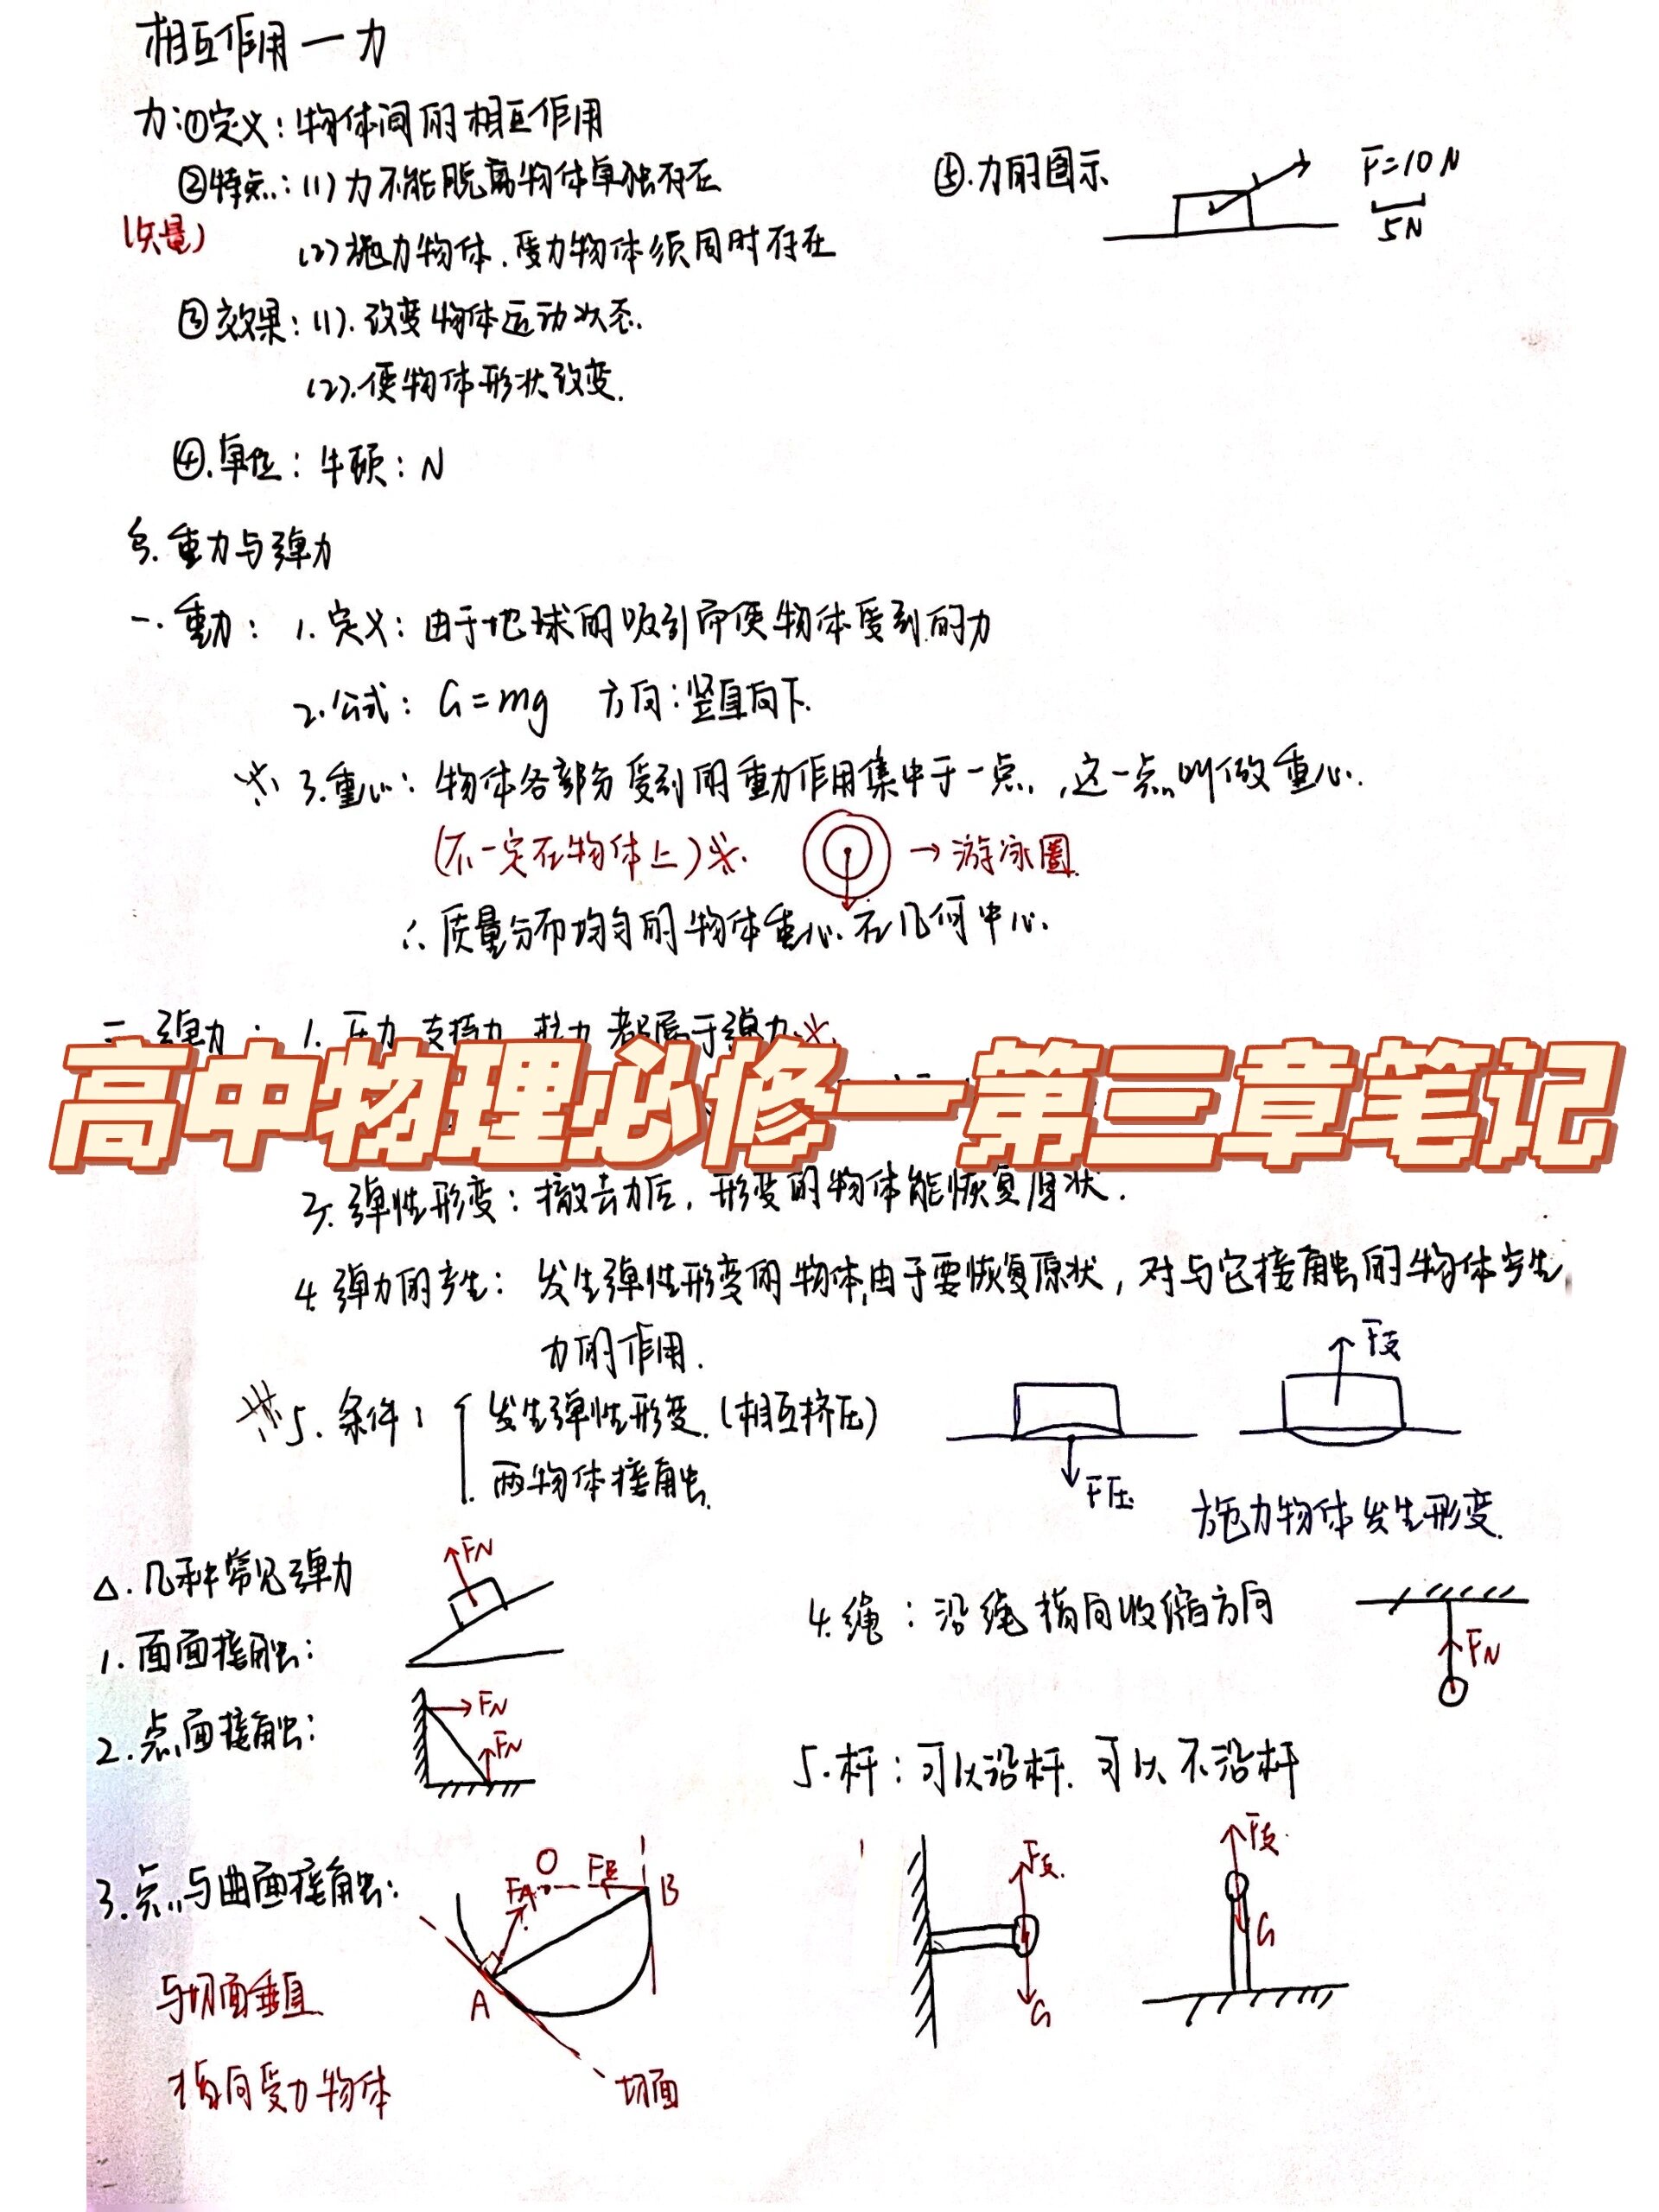 相互作用—力
力:①定义:物体间的相互作用
②特点:(1)力不能脱离物体单独存在
(矢量)
(2)施力物体.受力物体须同时存在
③效果:(1).改变物体运动状态.
(2).使物体形状改变.
④.单位:牛顿:N
⑤.力的图示
F=10N
5N
重力与弹力
一.重力: 1.定义:由于地球的吸引而使物体受到的力
2.公式: G=mg 方向:竖直向下.
※ 3.重心:物体各部分受到的重力作用集中于一点,这一点叫做重心.
(不一定在物体上)※. → 游泳圈.
∴质量分布均匀的物体重心在几何中心.
二.弹力: 1.压力 支持力 拉力 都属于弹力※.
高中物理必修一第三章笔记
3.弹性形变:撤去力后,形变的物体能恢复原状.
4.弹力的产生: 发生弹性形变的物体,由于要恢复原状,对与它接触的物体产生
力的作用.
※5.条件: 发生弹性形变.(相互挤压)
两物体接触.
F压
F支
施力物体发生形变.
△.几种常见弹力
1.面面接触:
FN
2.点面接触:
FN
FN
3.点与曲面接触:
与切面垂直
指向受力物体
O
FA
FB
B
A
切面
4.绳:沿绳指向收缩方向
FN
5.杆:可以沿杆.可以不沿杆
F支.
G
F支.
G